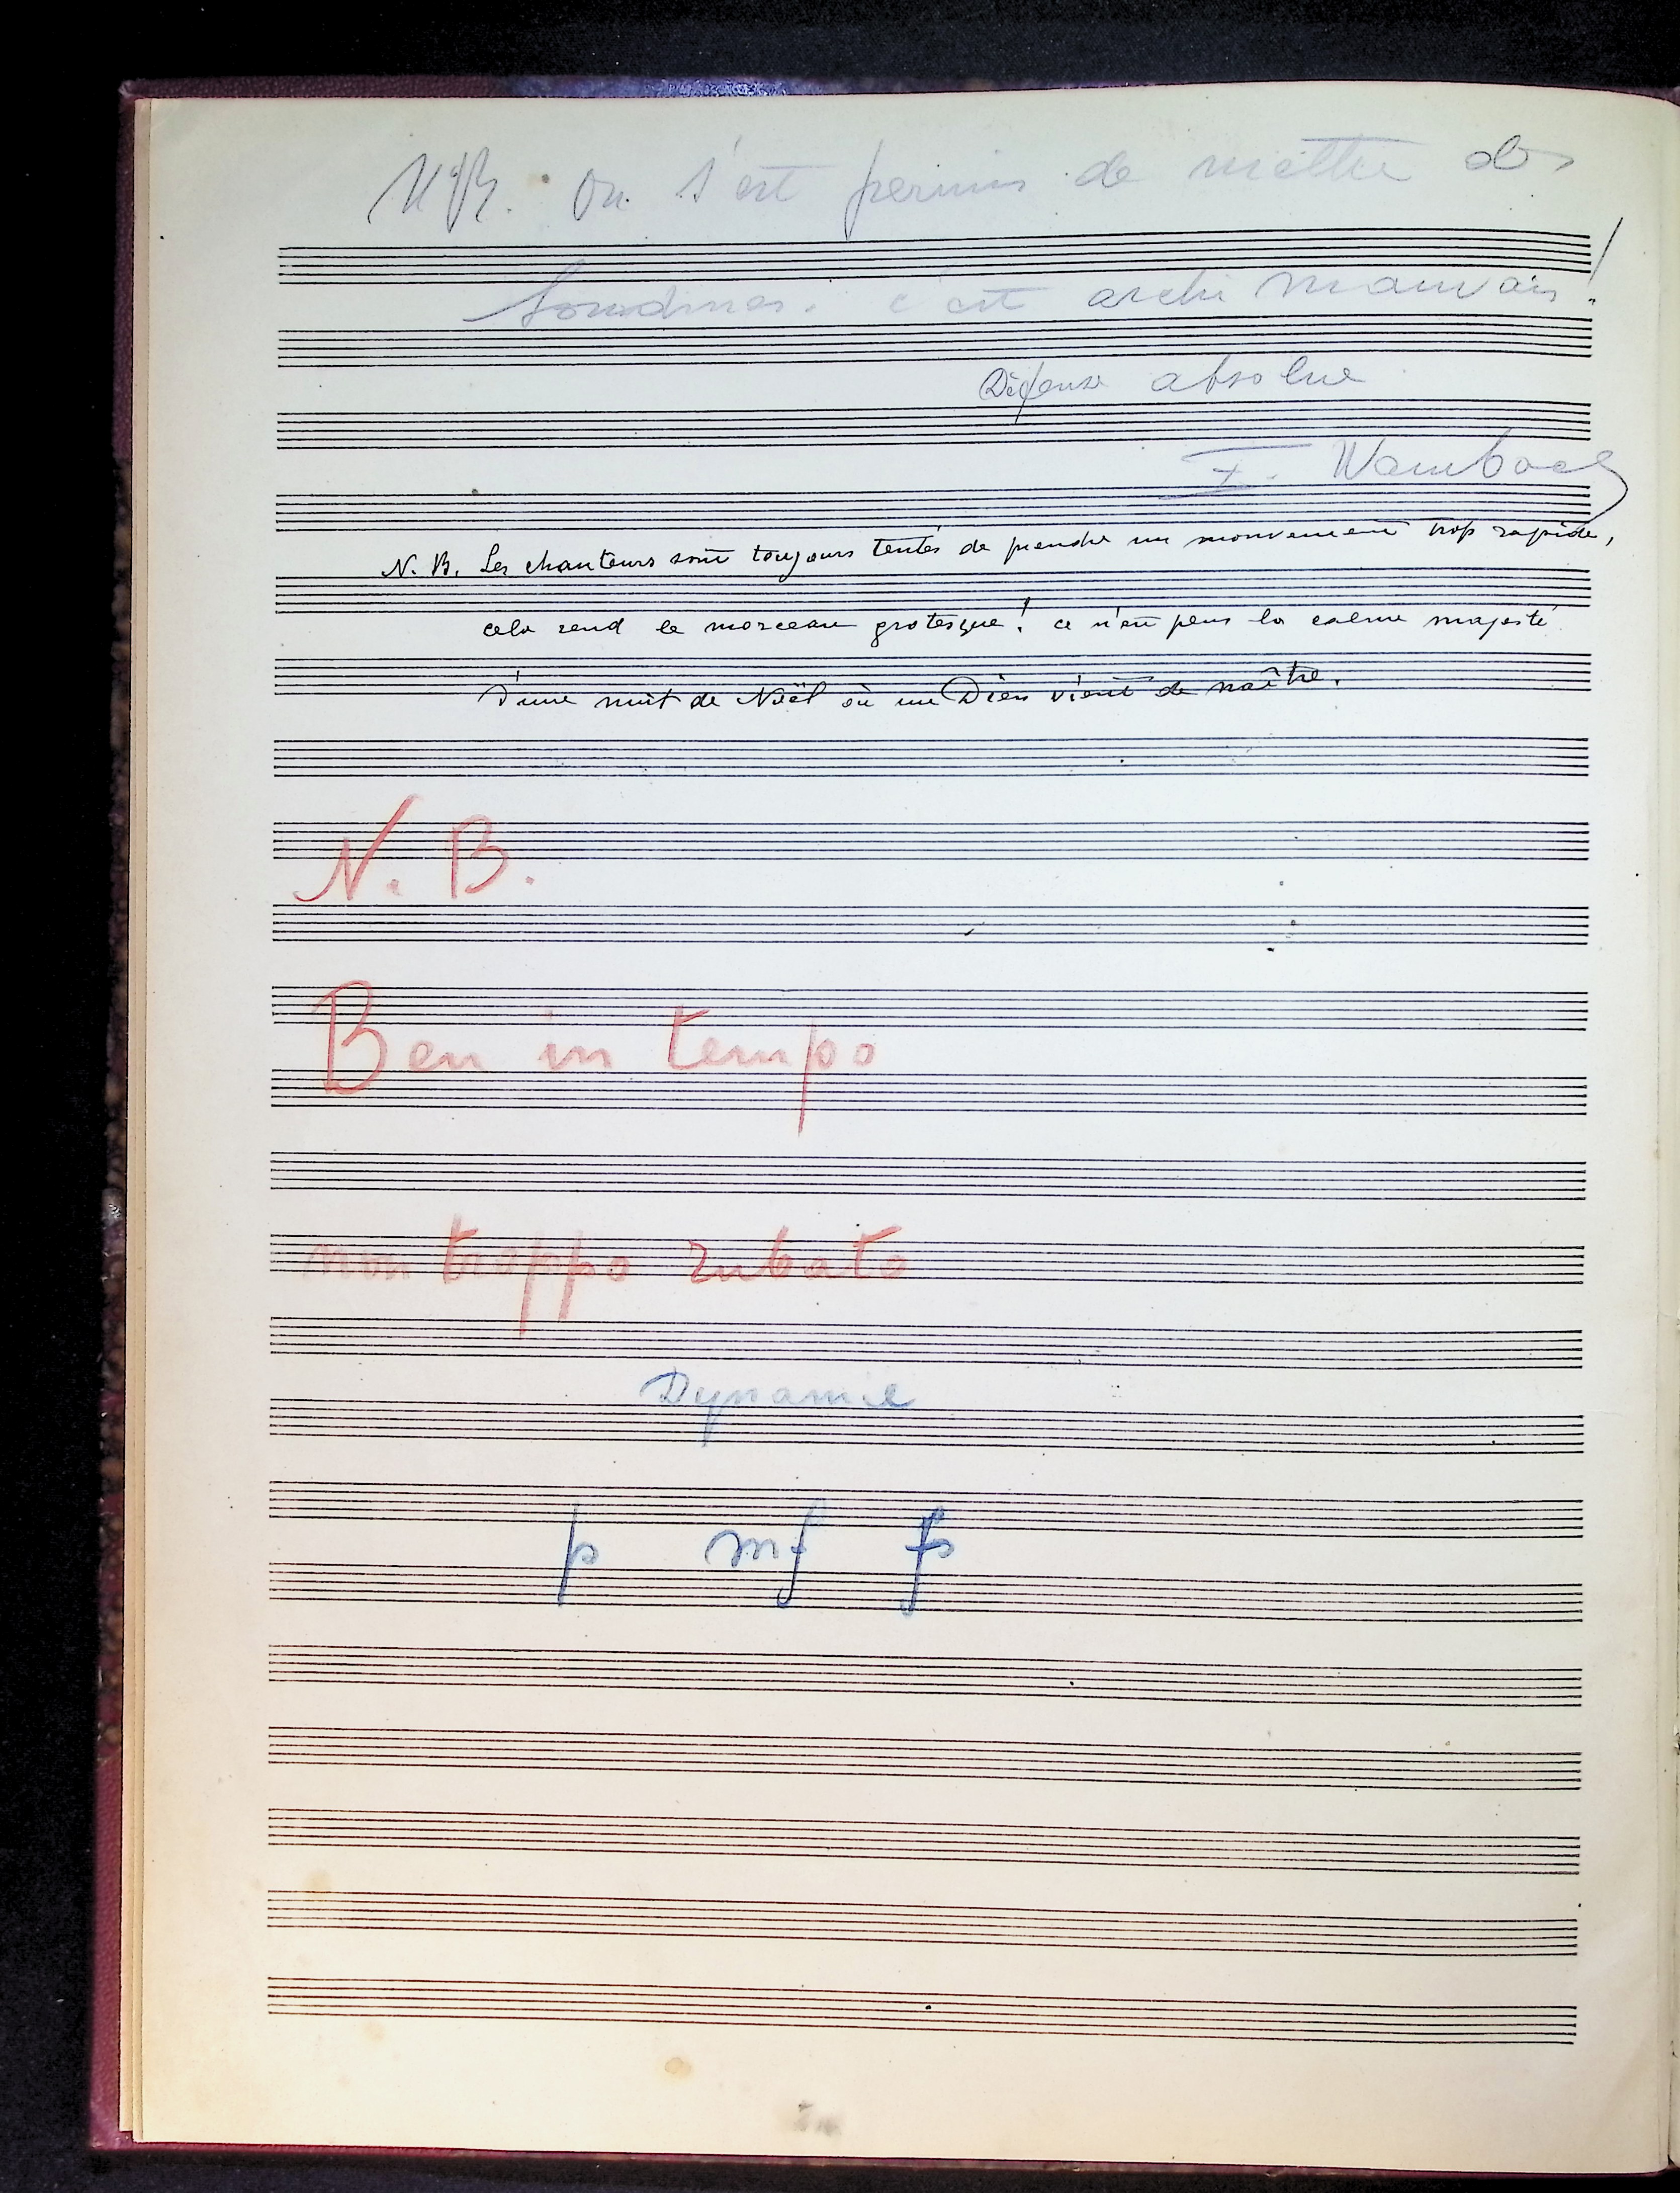 NB. On s'est permis de mettre des
sourdines. c'est archi mauvais!
Défense absolue
F. Wambach
N. B. Les chanteurs sont toujours tentés de prendre un mouvement trop rapide,
cela rend le morceau grotesque! ce n'est plus la calme majesté
d'une nuit de Noël où un Dieu vient de naître.
N. B.
Ben in tempo
non troppo rubato
Dynamie
p mf